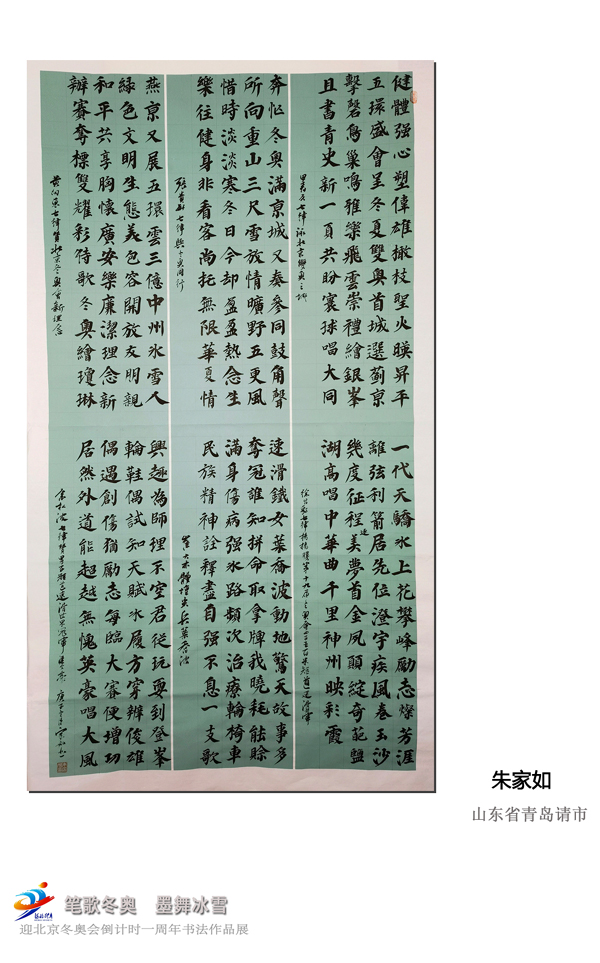 健體强心塑偉雄橄枝聖火暎昇平
五環盛會呈冬夏雙奧首城選薊京
擊磬鳥巢鳴雅樂飛雲崇禮繪銀峯
且書青史新一頁共盼寰球唱大同
七律詠北京雙奧之城
弃忙冬奧滿京城又奏參同鼓角聲
所向重山三尺雪放情曠野五更風
惜時淡淡寒冬日今却盈盈熱念生
樂往健身非看客尚托無限華夏情
燕京又展五環雲三億中州氷雪人
緑色文明生態美包容開放友明親
和平共享胸懷廣安樂廉潔理念新
辦賽奪標雙耀彩待歌冬奧繪瓊琳
黄向東七律贊北京冬奧會新理念
一代天驕氷上花攀峰勵志燦芳涯
離弦利箭居先位澄宇疾風卷玉沙
幾度征程逐美夢首金夙願綻奇葩鹽
湖高唱中華曲千里神州映彩霞
速滑鐵女葉喬波動地驚天故事多
奪冠誰知拼命取拿牌我曉耗能賒
滿身傷病强氷路頻次治療輪椅車
民族精神詮釋盡自强不息一支歌
興趣為師理不空君從玩耍到登峯
輪鞋偶試知天賦氷履方穿辦俊雄
偶遇創傷猶勵志每臨大賽便增功
居然外道能超越無愧英豪唱大風
朱家如
山东省青岛请市
笔歌冬奥 墨舞冰雪
迎北京冬奥会倒计时一周年书法作品展